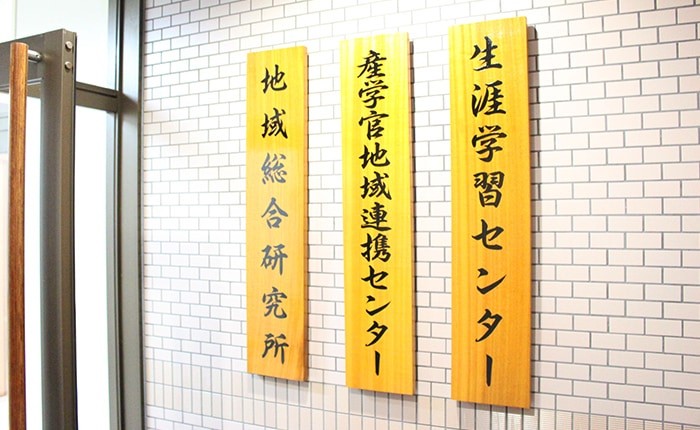 生涯学習センター
産学官地域連携センター
地域総合研究所